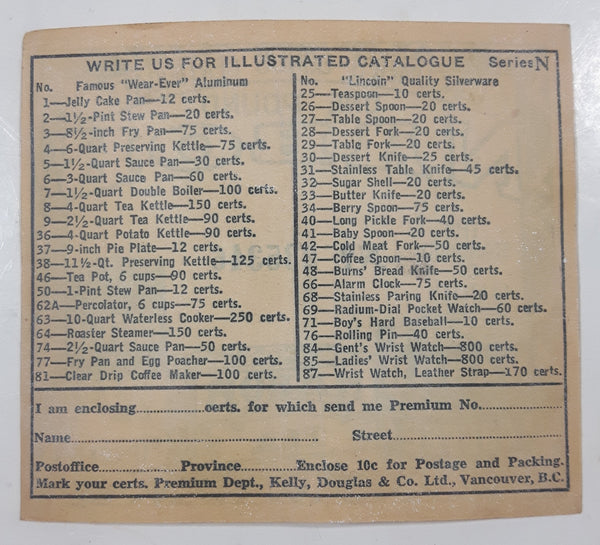 WRITE US FOR ILLUSTRATED CATALOGUE Series N
No. Famous "Wear-Ever" Aluminum
1—Jelly Cake Pan—12 certs.
2—1½-Pint Stew Pan—20 certs.
3—8½-inch Fry Pan—75 certs.
4—6-Quart Preserving Kettle—75 certs.
5—1½-Quart Sauce Pan—30 certs.
6—3-Quart Sauce Pan—60 certs.
7—1½-Quart Double Boiler—100 certs.
8—4-Quart Tea Kettle—150 certs.
9—2½-Quart Tea Kettle—90 certs.
36—4-Quart Potato Kettle—90 certs.
37—9-inch Pie Plate—12 certs.
38—11½-Qt. Preserving Kettle—125 certs.
46—Tea Pot, 6 cups—90 certs.
50—1-Pint Stew Pan—12 certs.
62A—Percolator, 6 cups—75 certs.
63—10-Quart Waterless Cooker—250 certs.
64—Roaster Steamer—150 certs.
74—2½-Quart Sauce Pan—50 certs.
77—Fry Pan and Egg Poacher—100 certs.
81—Clear Drip Coffee Maker—100 certs.
No. "Lincoln" Quality Silverware
25—Teaspoon—10 certs.
26—Dessert Spoon—20 certs.
27—Table Spoon—20 certs.
28—Dessert Fork—20 certs.
29—Table Fork—20 certs.
30—Dessert Knife—25 certs.
31—Stainless Table Knife—45 certs.
32—Sugar Shell—20 certs.
33—Butter Knife—20 certs.
34—Berry Spoon—75 certs.
40—Long Pickle Fork—40 certs.
41—Baby Spoon—20 certs.
42—Cold Meat Fork—50 certs.
47—Coffee Spoon—10 certs.
48—Burns' Bread Knife—50 certs.
66—Alarm Clock—75 certs.
68—Stainless Paring Knife—20 certs.
69—Radium-Dial Pocket Watch—60 certs.
71—Boy's Hard Baseball—10 certs.
76—Rolling Pin—40 certs.
84—Gent's Wrist Watch—800 certs.
85—Ladies' Wrist Watch—800 certs.
87—Wrist Watch, Leather Strap—170 certs.
I am enclosing..................certs. for which send me Premium No.....................
Name.................................................................. Street.............................................
Postoffice.....................Province......................Enclose 10c for Postage and Packing.
Mark your certs. Premium Dept., Kelly, Douglas & Co. Ltd., Vancouver, B.C.